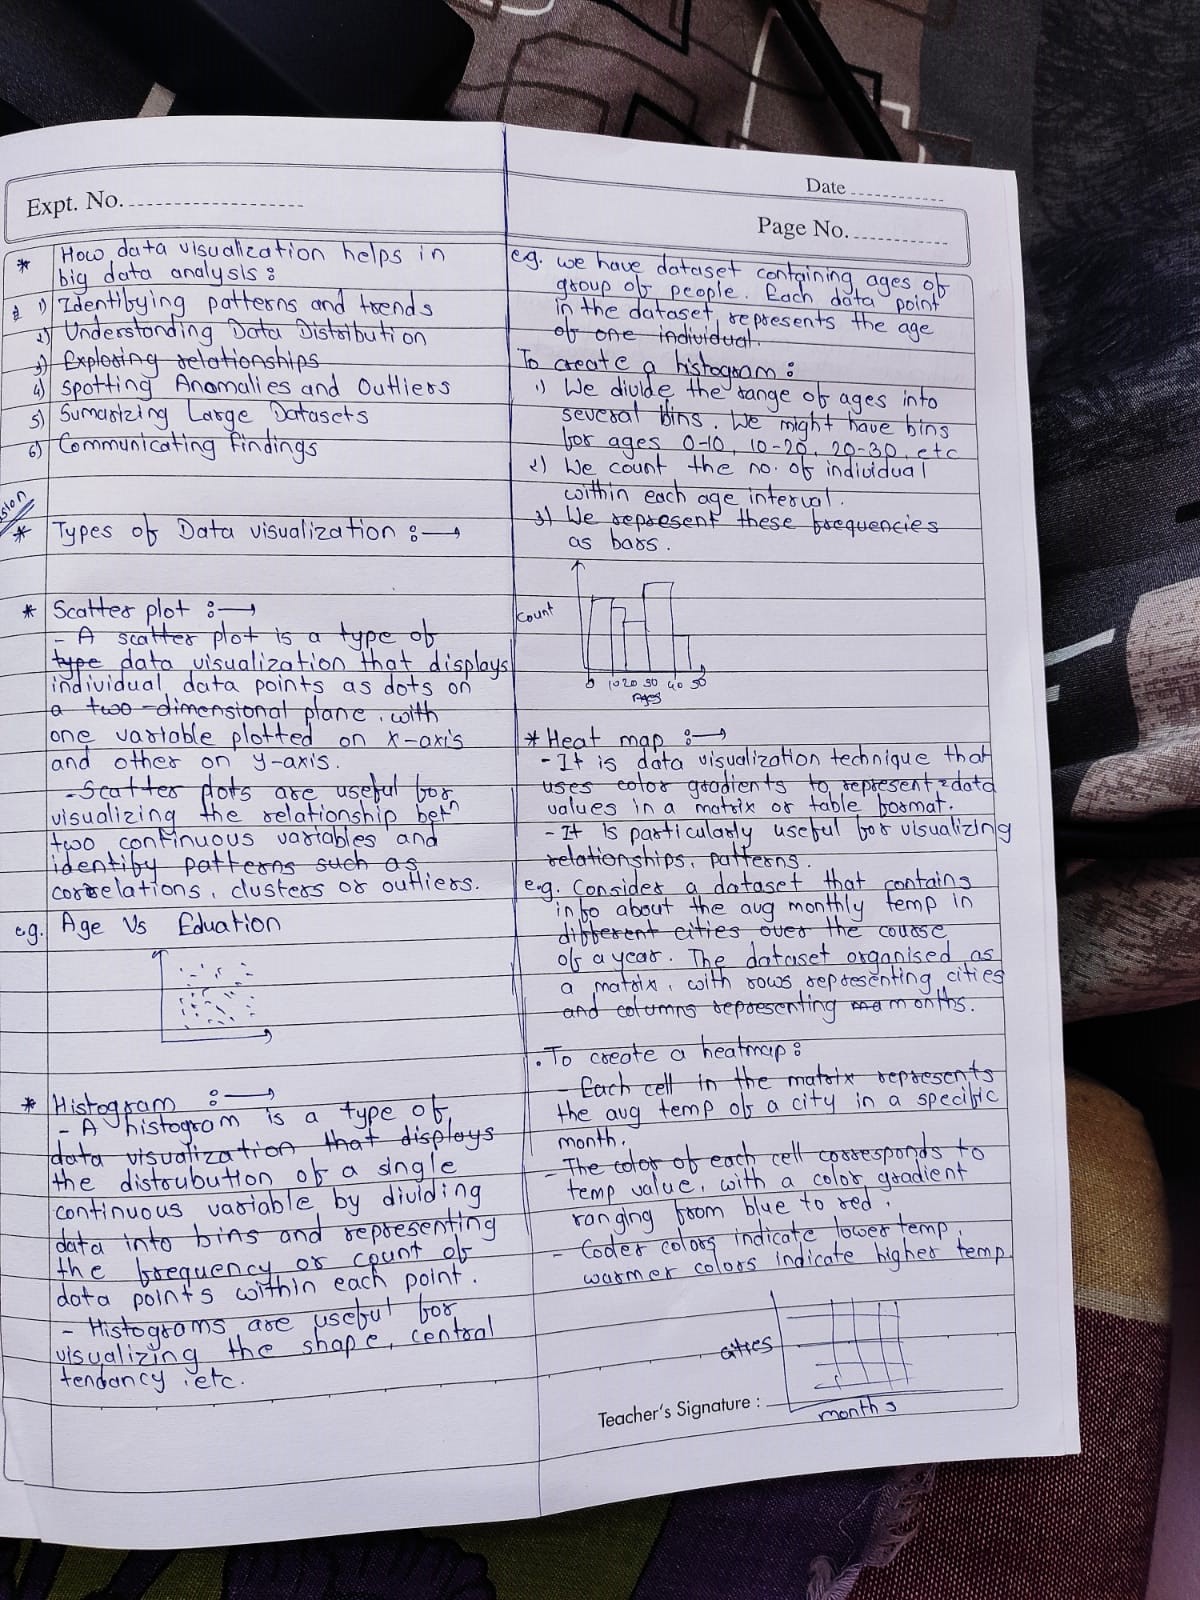 Expt. No.
Date
Page No.
* How data visualization helps in
big data analysis :
1) Identifying patterns and trends
2) Understanding Data Distribution
3) Exploring relationships
4) Spotting Anomalies and Outliers
5) Sumarizing Large Datasets
6) Communicating findings
* Types of Data visualization :→
* Scatter plot :→
- A scatter plot is a type of
type data visualization that displays
individual data points as dots on
a two-dimensional plane, with
one variable plotted on x-axis
and other on y-axis.
- Scatter plots are useful for
visualizing the relationship betn
two continuous variables and
identify patterns such as
correlations, clusters or outliers.
e.g. Age Vs Eduation
* Histogram :→
- A histogram is a type of
data visualization that displays
the distrubution of a single
continuous variable by dividing
data into bins and representing
the frequency or count of
data points within each point.
- Histograms are useful for
visualizing the shape, central
tendancy, etc.
e.g. we have dataset containing ages of
group of people. Each data point
in the dataset, represents the age
of one individual.
To create a histogram :
1) We divide the range of ages into
several bins. We might have bins
for ages 0-10, 10-20, 20-30, etc
2) We count the no. of individual
within each age interval.
3) We represent these frequencies
as bars.
count
0 10 20 30 40 50
Ages
* Heat map :→
- It is data visualization technique that
uses color gradients to represent data
values in a matrix or table format.
- It is particularly useful for visualizing
relationships, patterns.
e.g. Consider a dataset that contains
info about the avg monthly temp in
different cities over the course
of a year. The dataset organised as
a matrix, with rows representing cities
and columns representing ma months.
. To create a heatmap :
- Each cell in the matrix represents
the avg temp of a city in a specific
month.
- The color of each cell corresponds to
temp value, with a color gradient
ranging from blue to red.
- Coder colors indicate lower temp,
warmer colors indicate higher temp.
cities
months
Teacher's Signature :